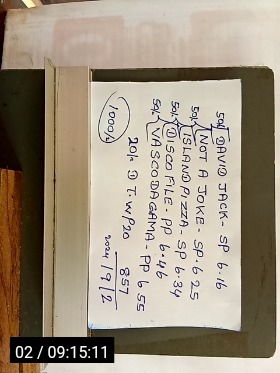 50/. { DAVID JACK - SP 6.16
50/. { NOT A JOKE - SP. 6 25
{ ISLAND PIZZA - SP 6.34
50/. { DISCO FILE - PP 6.46
50/. { VASCODAGAMA - PP 6 55
20/. D T. W/P20 857
1000/- 2024/9/2
02 / 09:15:11